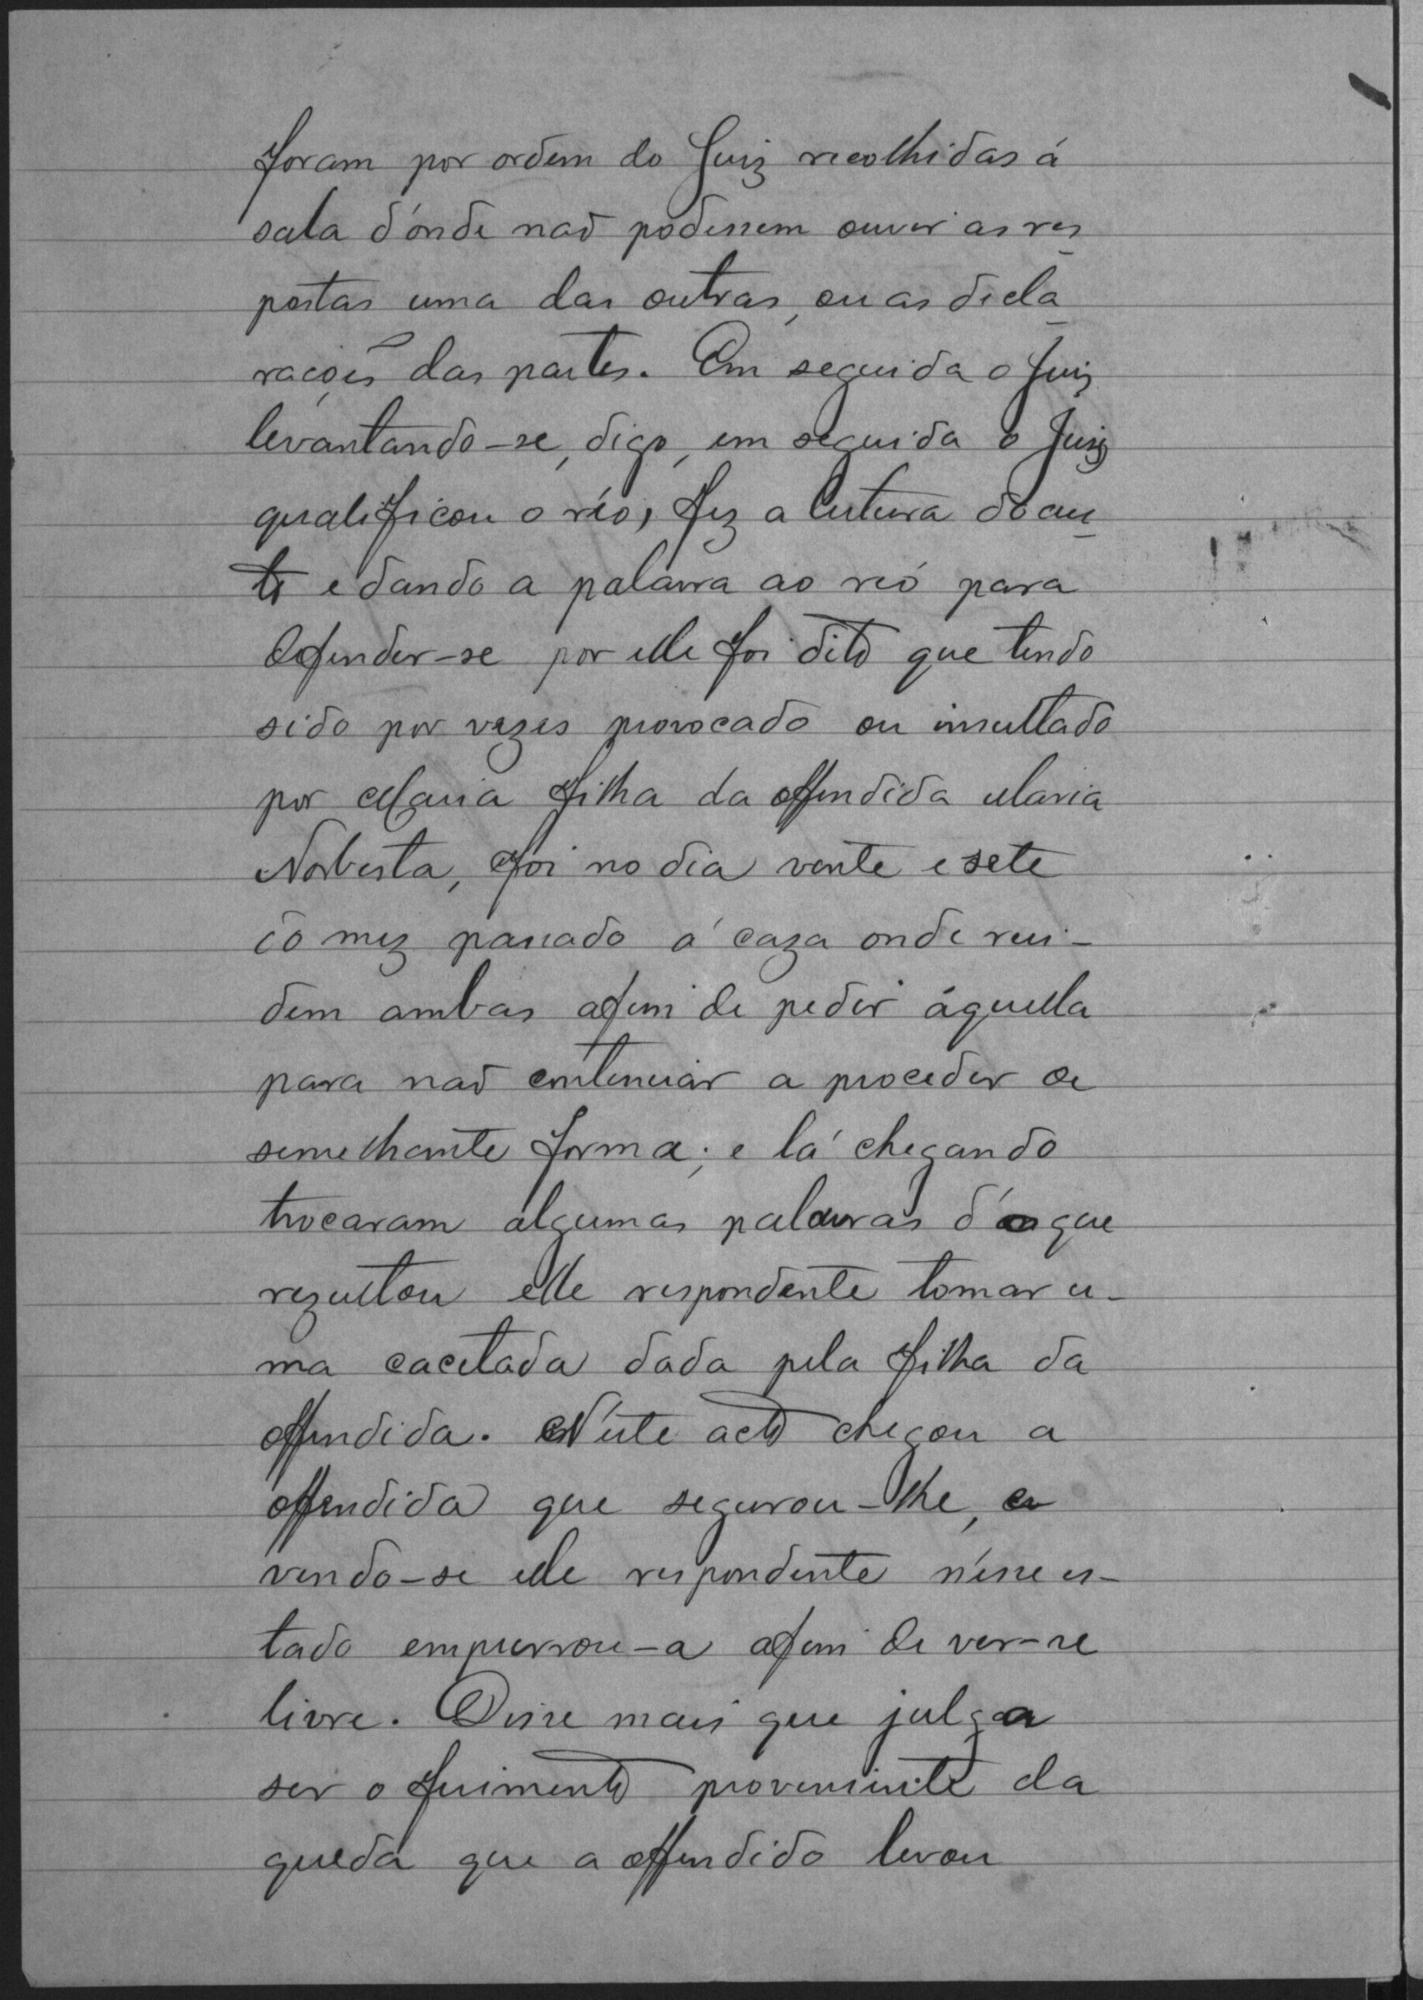 foram por ordem do Juiz recolhidas á
sala d'ónde naõ podessem ouvir as res
postas uma das outras, ou as decla
rações das partes. Em seguida o Juiz
levantando-se, digo, em seguida o Juiz
qualificou o réo, fez a leitura do au
to e dando a palavra ao reó para
defender-se por elle foi dito que tendo
sido por vezes provocado ou insultado
por Maria filha da offendida Maria
Norberta, foi no dia vente e sete
do mez passado á caza onde resi-
dem ambas afim de pedir áquella
para naõ continuar a proceder de
semelhante forma; e lá chegando
trocaram algumas palavras d'o que
rezultou elle respondente tomar u-
ma cacetada dada pela filha da
offendida. N'éste acto chegou a
offendida que segurou-lhe, e
vendo-se elle respondente n'ésse es-
tado empurrou-a afim de ver-se
livre. Disse mais que julga
ser o ferimento proveniente da
queda que a offendido levou